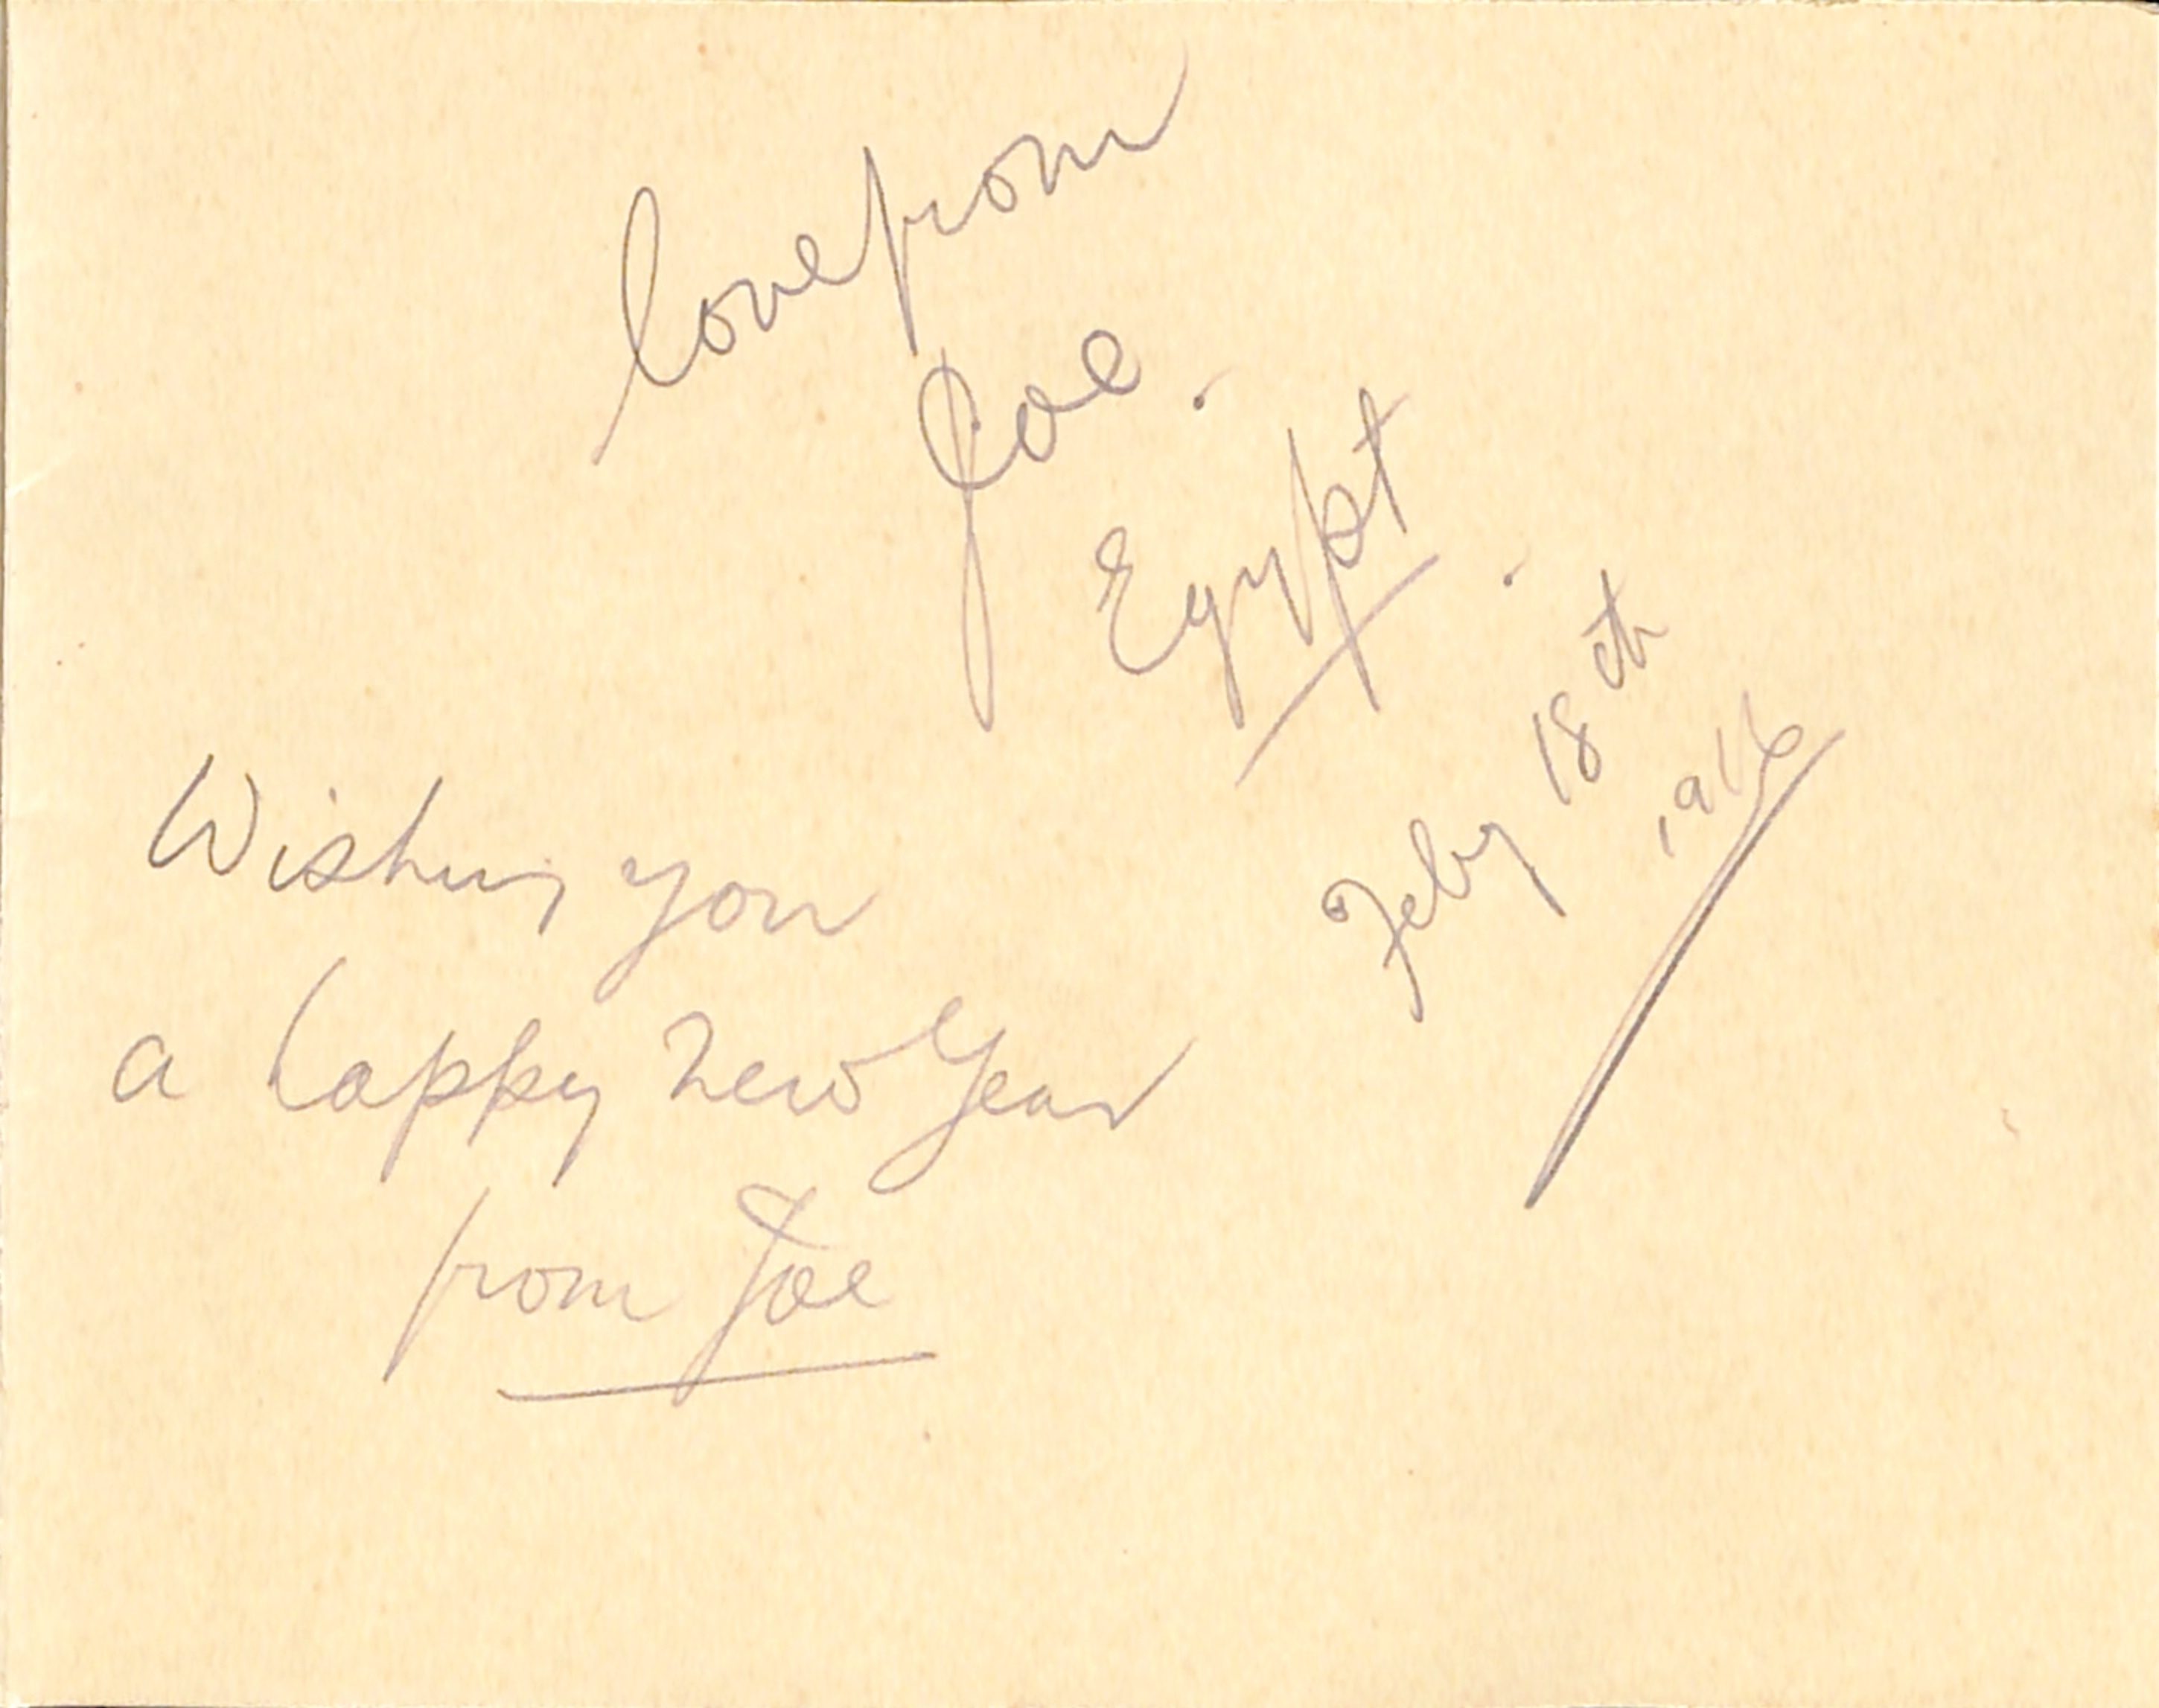 love from
Joe.
Egypt.
Feby 18th
1916
Wishing you
a happy New Year
from Joe